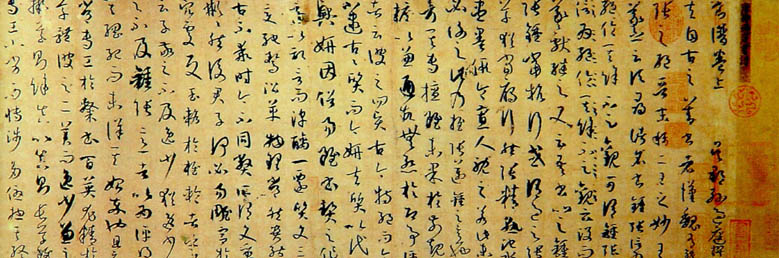 書譜卷上 吳郡孫過庭撰
夫自古之善書者漢魏有鍾
張之絕晉末稱二王之妙王
羲之云頃尋諸名書鍾張信
為絕倫其餘不足觀可謂鍾張云沒而
羲獻繼之又云吾書比之鍾
張鍾當抗行或謂過之張
草猶當雁行然張精熟池水
盡墨假令寡人耽之若此未
必謝之此乃推張邁鍾之意也
考其專擅雖未果於前規
摭以兼通故無慚於即事評
者云彼之四賢古今特絕而今
不逮古古質而今妍夫質以代
興妍因俗易雖書契之作適
以記言而淳醨一遷質文三
變馳鶩沿革物理常然貴能
古不乖時今不同弊所謂文質
彬彬然後君子何必易雕宮於
穴處反玉輅於椎輪者乎又
云子敬之不及逸少猶逸少之
不及鍾張意者以為評得其
綱紀而未詳其始卒也且元
常專工於隸書百英尤精於
草體彼之二美而逸少兼之
擬草則餘真比真則長草雖
專工小劣而博涉多優總其終